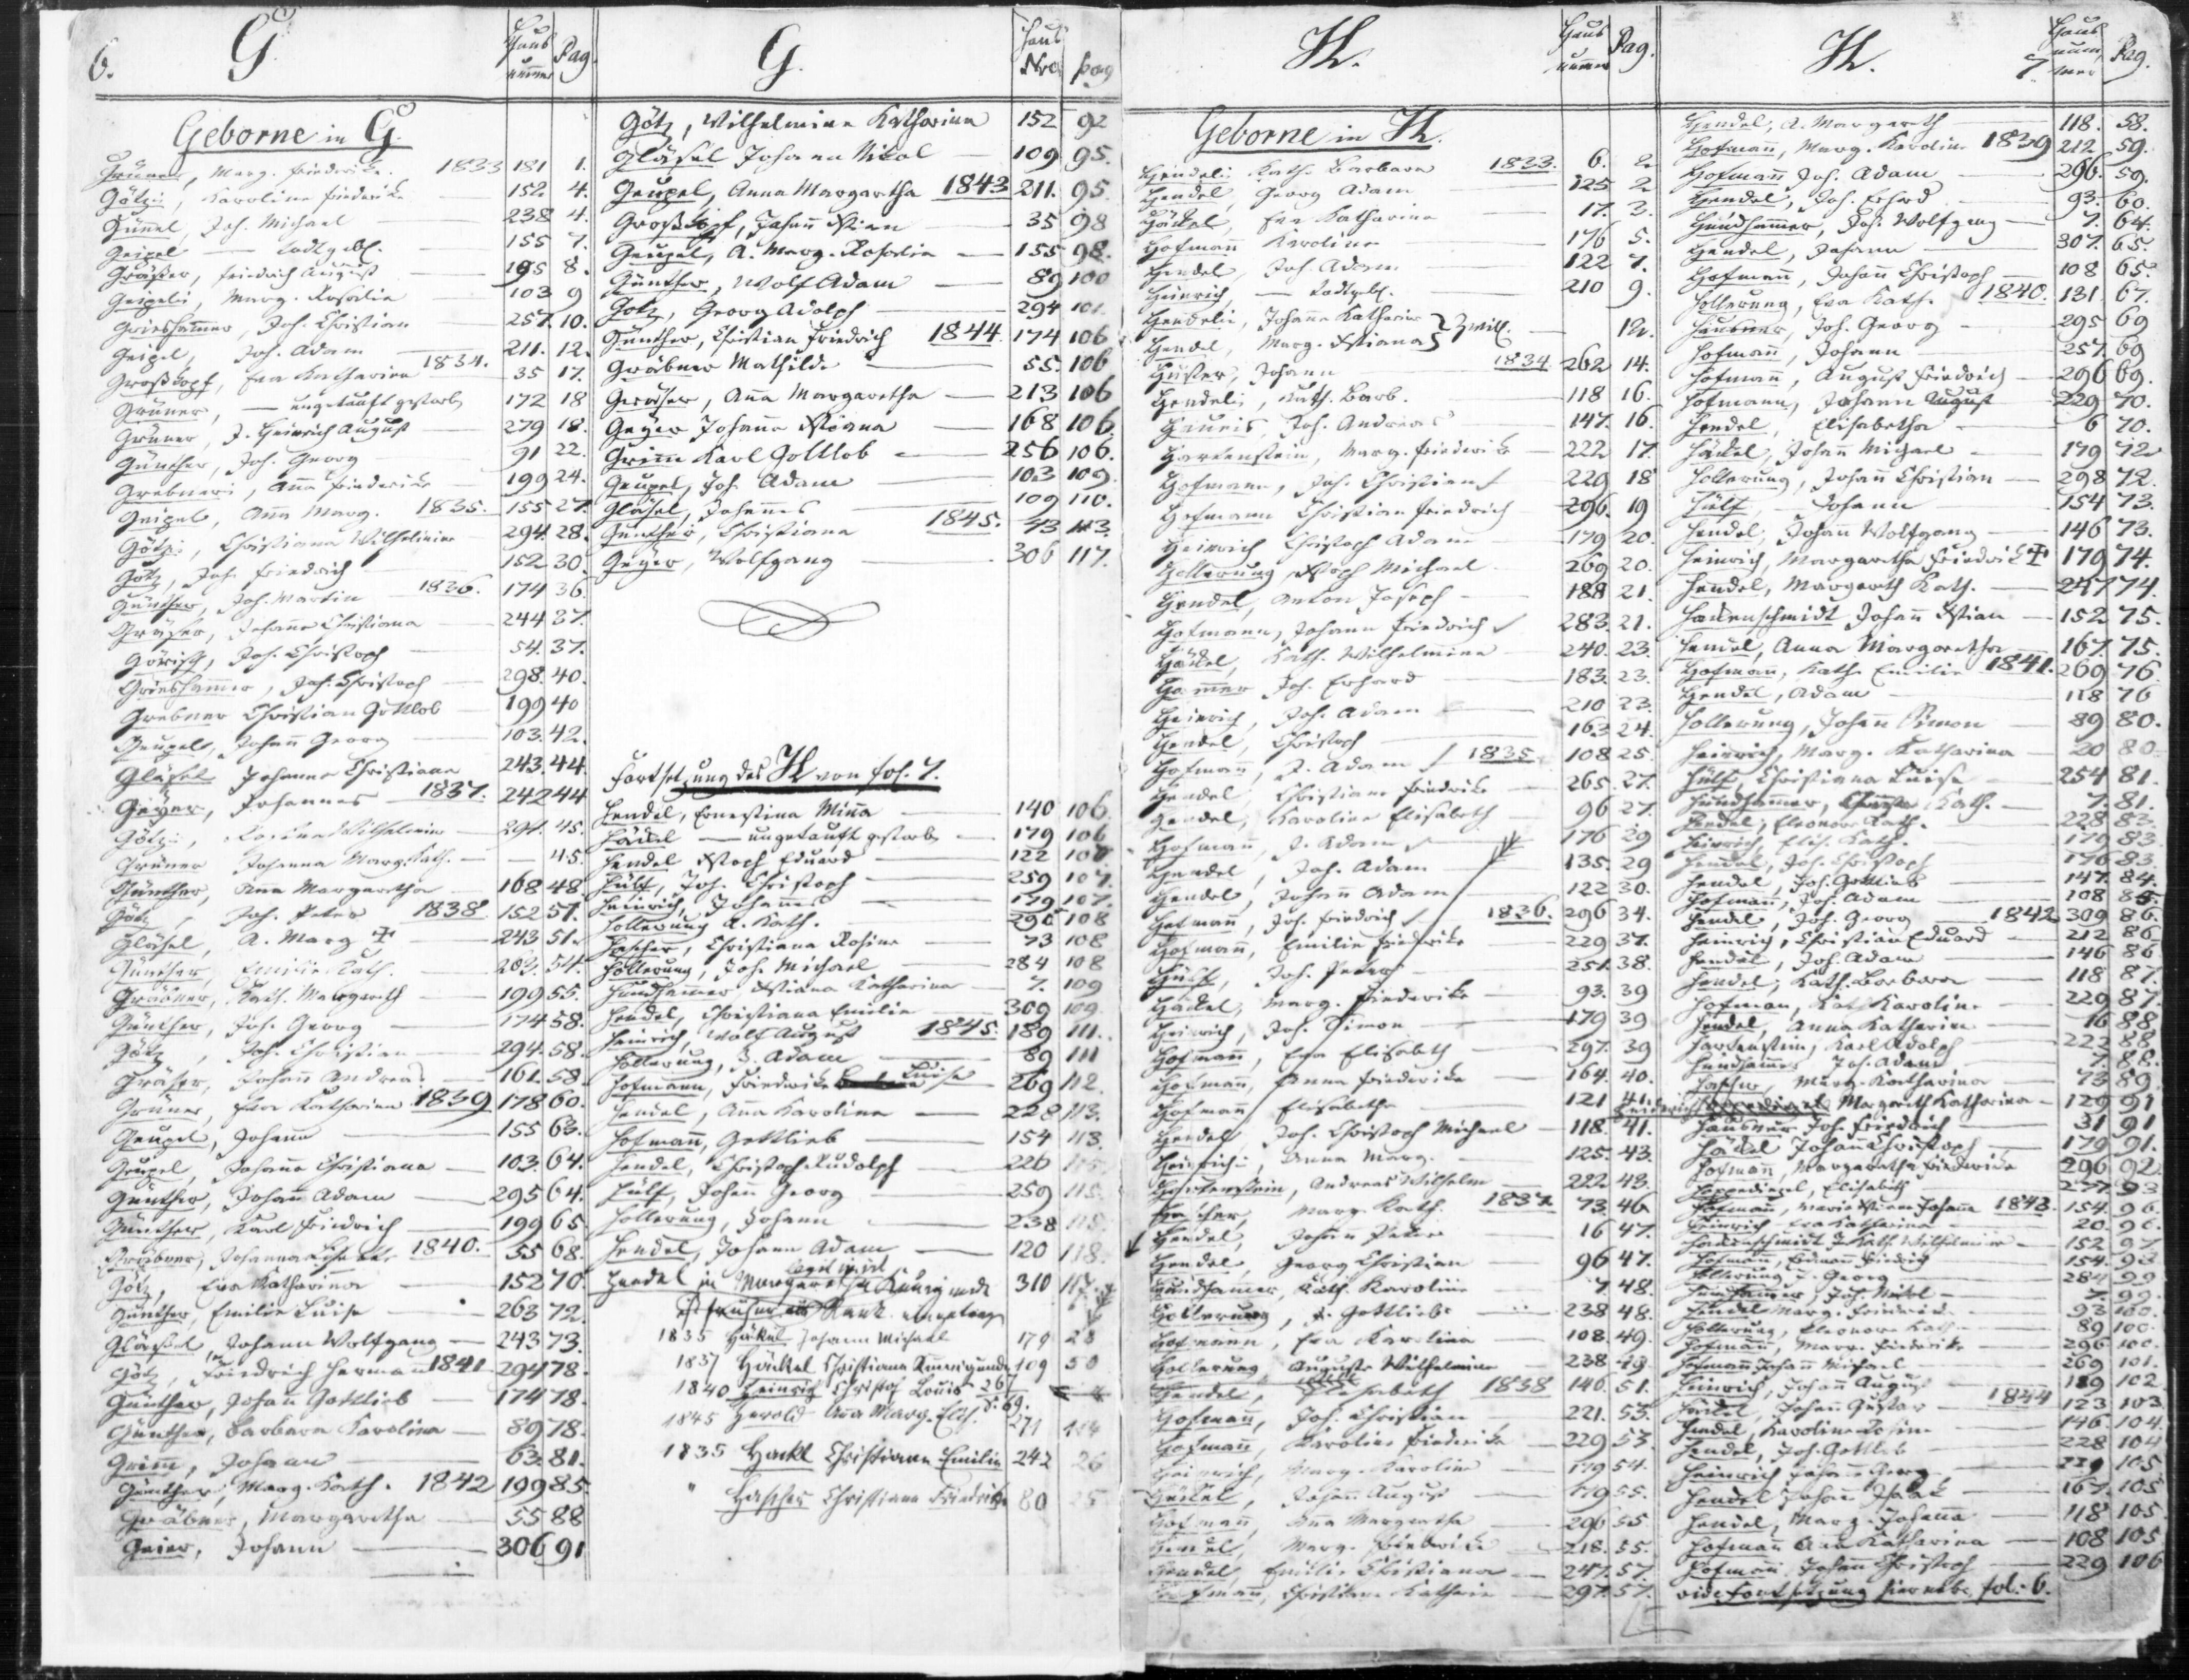 6. G. Haus nummer Pag.
Geborne in G.
Grüner, Marg. Friederike. 1833 181 1.
Götzin, Karoline Friederike 152 4.
Gümel, Joh. Michael 238 4.
Geipel — todtgeb. 155 7.
Gräßer, Friedrich August 195 8.
Geipelin, Marg. Rosalie 103 9
Grieshammer, Joh. Christian 257. 10.
Geipel, Joh. Adam 211. 12.
Großkopf, Eva Katharina 1834. 35 17.
Grüner, — ungetauft gestorb. 172 18
Grüner, J. Heinrich August 279 18.
Günther, Joh. Georg 91 22.
Grebnerin, Anna Friederike 199 24.
Geipel, Anna Marg. 1835. 155 27.
Götzin, Christiana Wilhelmine 294. 28.
Götz, Joh. Friedrich 152 30.
Günther, Joh. Martin 1836. 174 36.
Gräßer, Johanna Christiana 244 37.
Görisch, Joh. Christoph 54. 37.
Grieshammer, Joh. Christoph 298. 40.
Grebner Christian Gottlob 199 40
Geupel, Johann Georg 103. 42.
Gläsel Johanna Christiana 243. 44.
Geyer, Johannes 1837. 242 44
Götzin, Wilhelmine 294. 45.
Grüner Johanna Marg. Kath. — 45.
Günther, Anna Margaretha 168 48
Götz, Joh. Peter 1838. 152 51.
Gläsel, A. Marg. 243 51.
Günther, Emilie Kath. 54.
Gräbner, Kath. Margareth 199 55.
Günther, Joh. Georg 174 58.
Götz, Joh. Christian 294. 58.
Gräßer, Johann Andreas 161. 58.
Grüner, Eva Katharina 1839 178 60.
Geupel, Johann 155 63.
Geupel, Johanna Christiana 103. 64.
Günther, Johann Adam 295 64.
Günther, Karl Friedrich 199 65.
Gräbner, Johanna 1840. 55 68.
Götz, Eva Katharina 152 70
Günther, Emilie Luise 263 72.
Gläsel Johann Wolfgang 243 73.
Götz, Friedrich Herman 1841 294 78.
Günther, Johann Gottlieb 174 78.
Günther, Barbara Karolina 89 78.
Grimm, Johann 63. 81.
Günther, Marg. Kath. 1842 199 85
Gräbner, Margaretha 55 88
Geier, Johann 306 91
G. Haus Nro pag
Götz, Wilhelmine Katharina 152 92
Gläsel Johann Nikol 109 95.
Geupel, Anna Margaretha 1843 211. 95.
Großkopf, Johann Xtian 35 98
Geupel, A. Marg. Rosalie 155 98.
Günther, Wolf Adam 89 100
Götz, Georg Adolph 294 101.
Günther, Christian Friedrich 1844. 174 106
Gräbner Mathilde 55. 106
Gräßer, Anna Margaretha 213 106
Geyer Johanna Xtiana 168 106.
Grimm Karl Gottlob 256 106.
Geupel, Joh. Adam 103 109.
Gläsel, Johannes 109 110.
Günther, Christiana 1845. 43 113.
Geyer, Wolfgang 306 117.
Fortsetzung des H von fol. 7.
Hendel, Ernestina Minna 140 106.
Häckel — ungetauft gestorb. 179 106
Hendel Xtoph Eduard 122
Hülf, Joh. Christoph 259 107.
Heinrich, Johannes 179 107.
Hollerung A. Kath. 298 108
Hascher, Christiana Rosine 73 108
Hollerung, Joh. Michael 284 108
Hundhammer Xtiana Katharina 7. 109
Hendel, Christiana Emilie 309 109.
Heinrich, Wolf August 1845. 189 111.
Hollerung, J. Adam 89 111
Hofmann, Friederike Luise 269 112.
Hendel, Anna Karolina 228 113.
Hofmann, Gottlieb 154 113.
Hendel, Christoph Rudolph 226 115.
Hülf, Johann Georg 259 115.
Hollerung, Johann 238 115.
Hendel, Johann Adam 120 118.
Hendel Margaretha Kunigunde 310 117.
1835 Häckel Johann Michael 179 28
1837 Häckel Christiana Kunigunde 109 50
1840 Heinrich Christoph Louis 267 S. 69.
1845 Herold Anna Marg. Elis. 271 114
1835 Hackl Christiana Emilie 242 26
" Hascher Christiana Friederike 80 25
H. Haus nummer Pag.
Geborne in H.
Hendelin Kath. Barbara 1833. 6. 2.
Hendel, Georg Adam 125 2
Häckel, Eva Katharina 17. 3.
Hofmann Karoline 176 5.
Hendel, Joh. Adam 122 7.
Heinrich, — todtgeb. 210 9.
Hendelin, Johanna Katharina } Zwill. 12.
Hendel, Marg. Xtiana
Huster, Johann 1834. 262 14.
Hendelin, Kath. Barb. 118 16.
Häuris, Joh. Andreas 147. 16.
Hartenstein, Marg. Friederike 222 17.
Hofmann, Joh. Christian 229 18
Hofmann Christian Friedrich 296. 19
Heinrich Christoph Adam 179 20.
Hollerung Xtoph Michael 269 20.
Hendel, Anton Joseph 188 21.
Hofmann, Johann Friedrich 283. 21.
Häckel, Kath. Wilhelmina 240. 23.
Hammer Joh. Erhard 183. 23.
Heinrich, Joh. Adam 210 23.
Hendel, Christoph 163 24.
Hofmann, J. Adam 1835. 108 25.
Hendel, Christiana Friederike 265. 27.
Hendel, Karolina Elisabeth 96 27.
Hofmann, J. Adam 176 29
Hendel, Joh. Adam 135. 29
Hendel, Johann Adam 122 30.
Hofmann, Joh. Friedrich 1836. 296 34.
Hofmann, Emilie Friederike 229 37.
Hülf, Joh. Peter 251. 38.
Häckel, Marg. Friederike 93. 39
Heinrich, Joh. Simon 179 39
Hofmann, Eva Elisabeth 297. 39
Hofmann, Anna Friederike 164. 40.
Hofmann, Elisabetha 121 41.
Hendel, Joh. Christoph Michael 118. 41.
Heinrich, Anna Marg. 125. 43.
Hartenstein, Andreas Wilhelm 222 43.
Hascher, Marg. Kath. 1837. 73. 46
Hendel, Johann Peter 16 47.
Hendel, Georg Christian 96 47.
Hundhammer, Kath. Karoline 7. 48.
Hollerung, J. Gottliebe 238 48.
Hofmann, Eva Karolina 108. 49.
Hollerung Auguste Wilhelmine 238 49.
Hendel, Elisabeth 1838 146. 51.
Hofmann, Joh. Christian 221. 53.
Hofmann, Karoline Friederike 229 53.
Heinrich, Marg. Karoline 179 54.
Häckel, Johann August 179 55.
Hofmann, Anna Margaretha 296 55.
Hendel, Marg. Friederike 218. 55.
Hendel, Emilie Christiana 247. 57.
Hofmann, Christiana Katharin 297. 57.
H. 7. Haus nummer Pag.
Hendel, A. Margareth 118. 58.
Hofmann, Marg. Karoline 1839 212. 59.
Hofmann Joh. Adam 296. 59.
Hendel, Joh. Erhard 93. 60.
Hundhammer, Joh. Wolfgang 7. 64.
Hendel, Johann 307. 65.
Hofmann, Johann Christoph 108 65.
Hollerung, Eva Kath. 1840. 131 67.
Häusner, Joh. Georg 295 69
Hofmann, Johann 257. 69
Hofmann, August Friedrich 296 69.
Hofmann, Johann August 229 70.
Hendel, Elisabetha 6 70.
Häckel, Johann Michael 179 72
Hollerung, Johann Christian 298 72.
Hülf, Johann 154 73.
Hendel, Johann Wolfgang 146 73.
Heinrich, Margaretha Friedrik 179 74.
Hendel, Margareth Kath. 247 74.
Hackenschmidt Johann Xtian 152 75.
Hendel, Anna Margaretha 167. 75.
Hofmann, Kath. Emilie 1841. 269 76.
Hendel, Adam 118 76
Hollerung, Johann Simon 89 80.
Heinrich, Marg. Katharina 20 80.
Hülf, Christiana Luise 254 81.
Hundhammer, Kath. 7. 81.
Hendel, Eleonore Kath. 228 83.
Heinrich, Elis. Kath. 179 83
Hendel, Joh. Christoph 176 83.
Hendel, Joh. Gottlieb 147. 84.
Hofmann, Joh. Adam 108 85.
Hendel, Joh. Georg 1842 309 86.
Heinrich, Christian Eduard 212 86
Hendel, Joh. Adam 146 86.
Hendel, Kath. Barbara 118 87.
Hofmann, Kath. Karoline 229 87.
Hendel, Anna Katharina 16 88
Hartenstein, Karl Adolph 222 88.
Hundhammer Joh. Adam 7. 88.
Hascher, Marg. Katharina 73 89.
Heinrich Margareth Katharina 129 91
Häusner Joh. Friedrich 31 91
Häckel Johann Christoph 179 91.
Hofmann, Margaretha Friederike 296 92.
Hoppedizel, Elisabeth 277 93
Hofmann, Maria Xtiana Johanna 1843. 154. 96.
Heinrich Eva Katharina 20. 96.
Hackenschmidt J. Kath. Wilhelmine 152 97
Hofmann, Erdmann Friedrich 154. 98
Hollerung J. Georg 284 99
Hundhammer, Joh. Nikol 7. 99.
Hendel Marg. Friederike 93 100.
Hollerung, Eleonore Kath. 89 100.
Hofmann, Marg. Friederike 296 100.
Hofmann Johann Michael 269 101.
Heinrich, Johann August 189 102
Hendel, Johann Gustav 1844 123 103.
Hendel, Karoline Rosine 146 104.
Hendel, Joh. Gottlieb 228 104
Heinrich Johann Georg 105
Hendel Johann Isaak 167. 105
Hendel, Marg. Johanna 118 105
Hofmann Anna Katharina 108 105
Hofmann, Johann Christoph 229 106
vide Fortsetzung hierneben fol. 6.